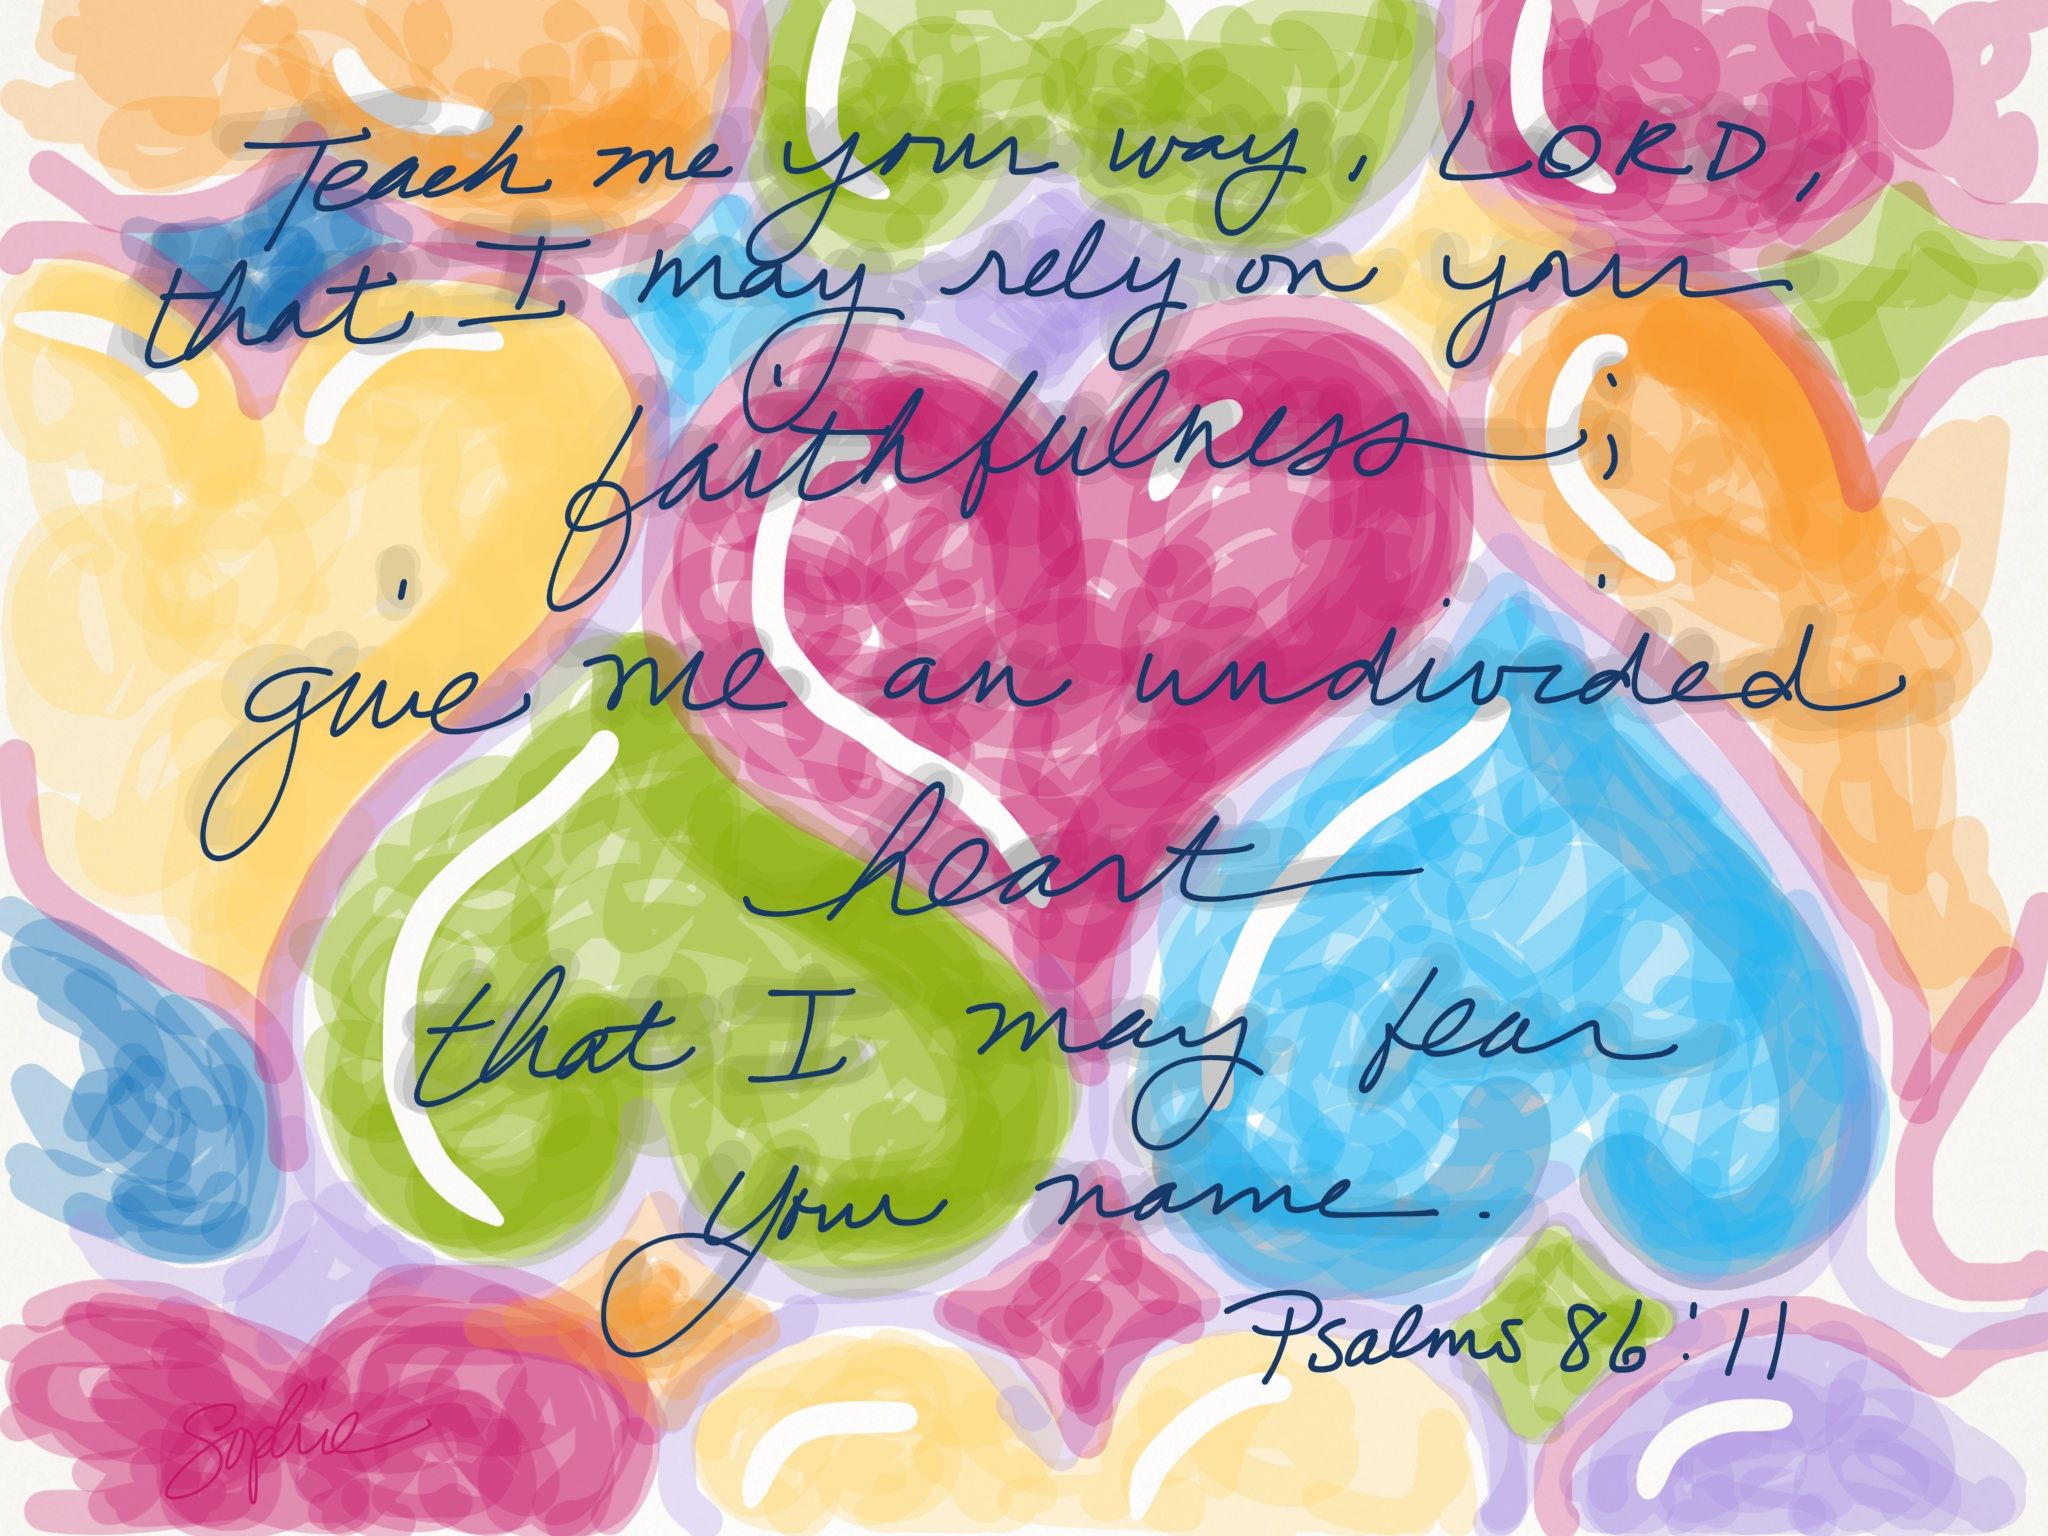 Teach me your way, LORD,
that I may rely on your
faithfulness;
give me an undivided
heart
that I may fear
your name.
Psalms 86:11
Sophie